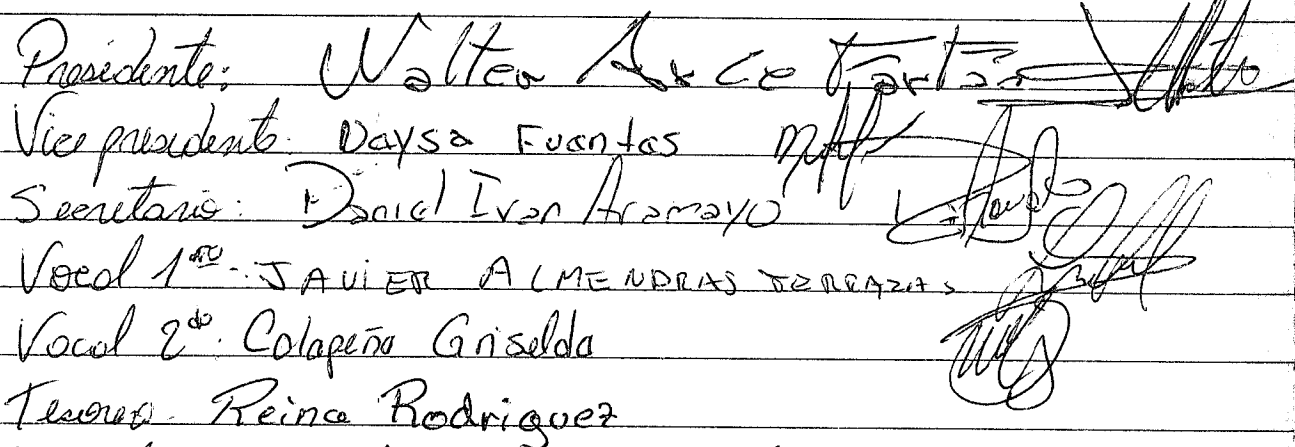 Presidente: Walter Arce
Vice presidente: Daysa Fuentes
Secretario: Daniel Ivan Aramayo
Vocal 1ro: JAViER ALMENDRAS TERRAZAS
Vocal 2do: Colapeña Griselda
Tesorero: Reina Rodriguez